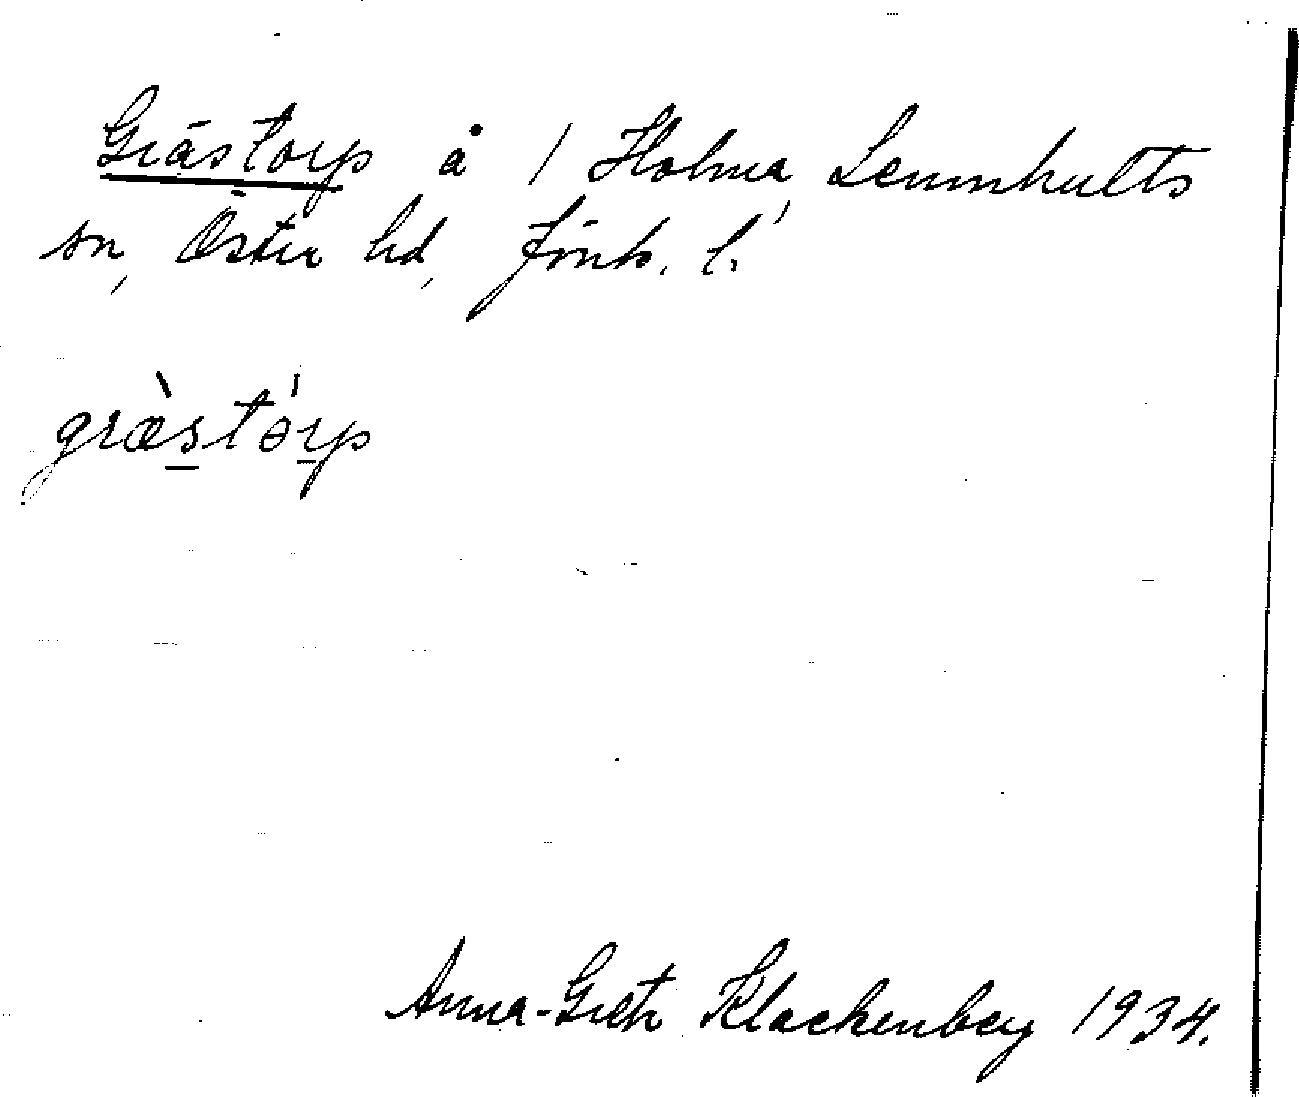 Grästorp å 1 Holma, Lemnhults
sn, Öster hd, Jönk. l.
græ̀stór̲p
Anna-Greta Klackenberg 1934.